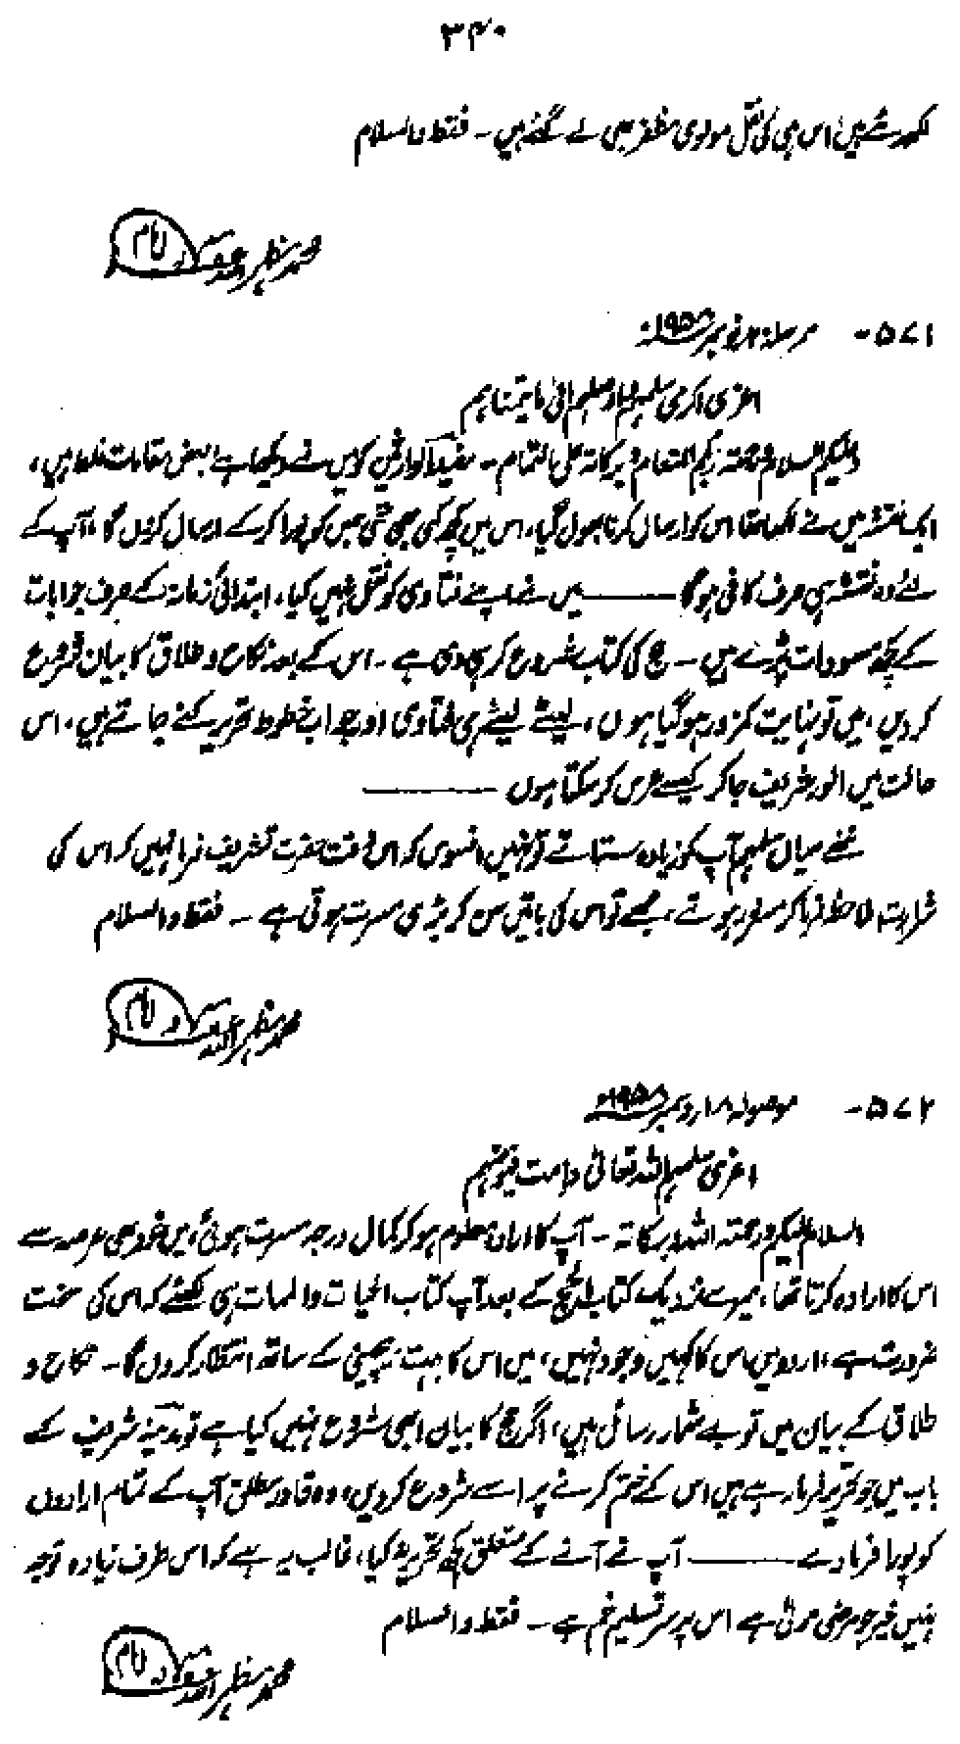 ۳۴۰
لکھ رہے ہیں اس ہی کی نقل مولوی مظفر بھی لے گئے ہیں ۔ فقط والسلام
محمد مظہر اللہ امام
۵۷۱- مرسلہ نومبر ۱۹۵۸ء
اعزی اکرمی سلمہم الی ما یتمناہم
وعلیکم السلام ورحمتہ برکاتہ علی الدوام ۔ مفید الوارثین کو میں نے دیکھا ہے بعض مقامات غلط ہیں،
ایک نقشہ میں نے لکھا تھا اس کو ارسال کرنا بھول گیا، اس میں کچھ کمی بھی تھی جس کو پورا کر کے ارسال کروں گا، آپ کے
لئے وہ نقشہ ہی صرف کافی ہوگا ——— میں نے اپنے فتاوی کو نقل نہیں کیا، ابتدائی زمانہ کے صرف جوابات
کے کچھ مسودات پڑے ہیں ۔ حج کی کتاب شروع کر ہی دی ہے ۔ اس کے بعد نکاح و طلاق کا بیان شروع
کر دیں، میں تو نہایت کمزور ہو گیا ہوں، لیٹے لیٹے ہی فتاوی اور جواب خطوط تحریر کئے جاتے ہیں، اس
حالت میں الور شریف جا کر کیسے عرس کر سکتا ہوں ———
ننھے میاں سلمہم آپ کو زیادہ ستاتے تو نہیں افسوس کہ اس وقت حضرت تشریف فرما نہیں کہ اس کی
شرارت ملاحظہ فرما کر مسرور ہوتے، مجھے تو اس کی باتیں سن کر بڑی مسرت ہوتی ہے ۔ فقط والسلام
محمد مظہر اللہ امام
۵۷۲- موصولہ ۱۸ دسمبر ۱۹۵۸ء
اعزی سلمہم اللہ تعالی دامت فیوضہم
السلام علیکم ورحمتہ اللہ وبرکاتہ ۔ آپ کا ارادہ معلوم ہو کر کمال درجہ مسرت ہوئی، میں خود بھی عرصہ سے
اس کا ارادہ کرتا تھا، میرے نزدیک کتاب الحج کے بعد آپ کتاب الحیات والممات ہی لکھئے کہ اس کی سخت
ضرورت ہے، اردو میں اس کا کہیں وجود نہیں، میں اس کا بہت بے چینی کے ساتھ انتظار کروں گا ۔ نکاح و
طلاق کے بیان میں تو بے شمار رسائل ہیں، اگر حج کا بیان ابھی شروع نہیں کیا ہے تو مدینہ شریف کے
باب میں جو تحریر فرما رہے ہیں اس کے ختم کرنے پر اسے شروع کر دیں، وہ قادر مطلق آپ کے تمام ارادوں
کو پورا فرما دے ——— آپ نے آنے کے متعلق کچھ تحریر نہ کیا، غالب یہ ہے کہ اس طرف زیادہ توجہ
نہیں خیر جو مرضی مولیٰ ہے اس پر سر تسلیم خم ہے ۔ فقط والسلام
محمد مظہر اللہ امام